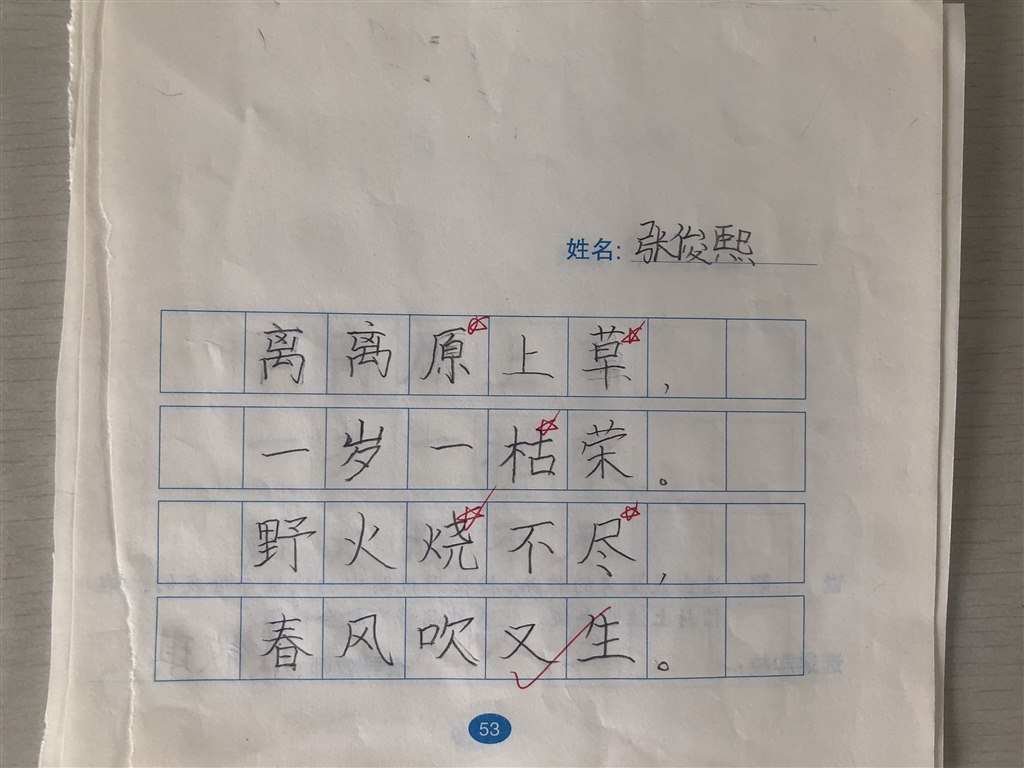 姓名: 张俊熙
离离原上草,
一岁一枯荣。
野火烧不尽,
春风吹又生。
53